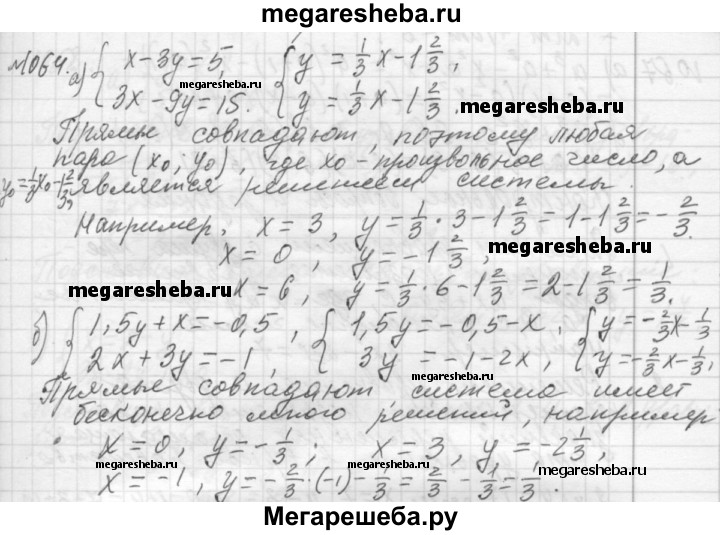 megaresheba.ru
№1064. а) { x - 3y = 5, { y = 1/3 x - 1 2/3,
megaresheba.ru
3x - 9y = 15. { y = 1/3 x - 1 2/3. megaresheba.ru
Прямые совпадают, поэтому любая
пара (x₀; y₀), где x₀ - произвольное число, а
y₀ = 1/3 x₀ - 1 2/3, является решением системы.
Например, x = 3, y = 1/3 · 3 - 1 2/3 = 1 - 1 2/3 = - 2/3.
x = 0, y = -1 2/3, megaresheba.ru
megaresheba.ru x = 6, y = 1/3 · 6 - 1 2/3 = 2 - 1 2/3 = 1/3.
б) { 1,5y + x = -0,5, { 1,5y = -0,5 - x, { y = - 2/3 x - 1/3
megaresheba.ru
2x + 3y = -1, { 3y = -1 - 2x, { y = - 2/3 x - 1/3,
megaresheba.ru
Прямые совпадают система имеет
бесконечно много решений, например
x = 0, y = - 1/3; x = 3, y = -2 1/3,
megaresheba.ru megaresheba.ru megaresheba.ru
x = -1, y = - 2/3 · (-1) - 1/3 = 2/3 - 1/3 = 1/3.
Мегарешеба.ру